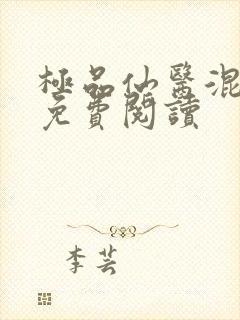 極品仙醫混
免費閱讀
李芸